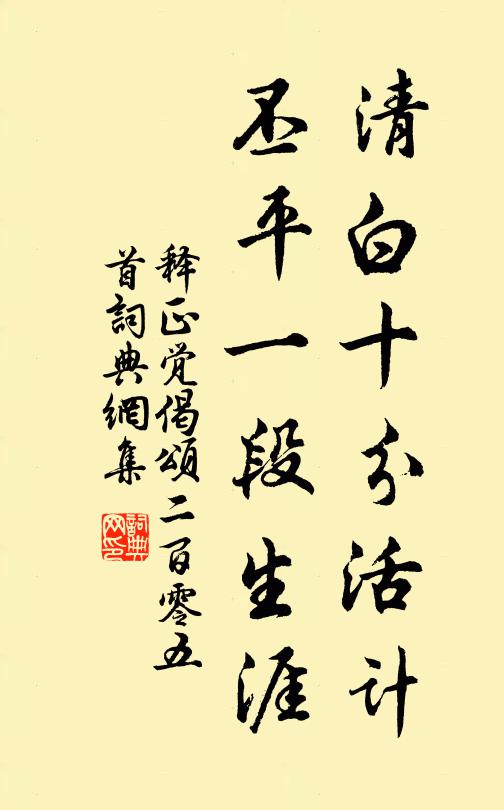 清白十分活计
丕平一段生涯
释正觉偈颂二百零五
首詞典網集
詞典
网印